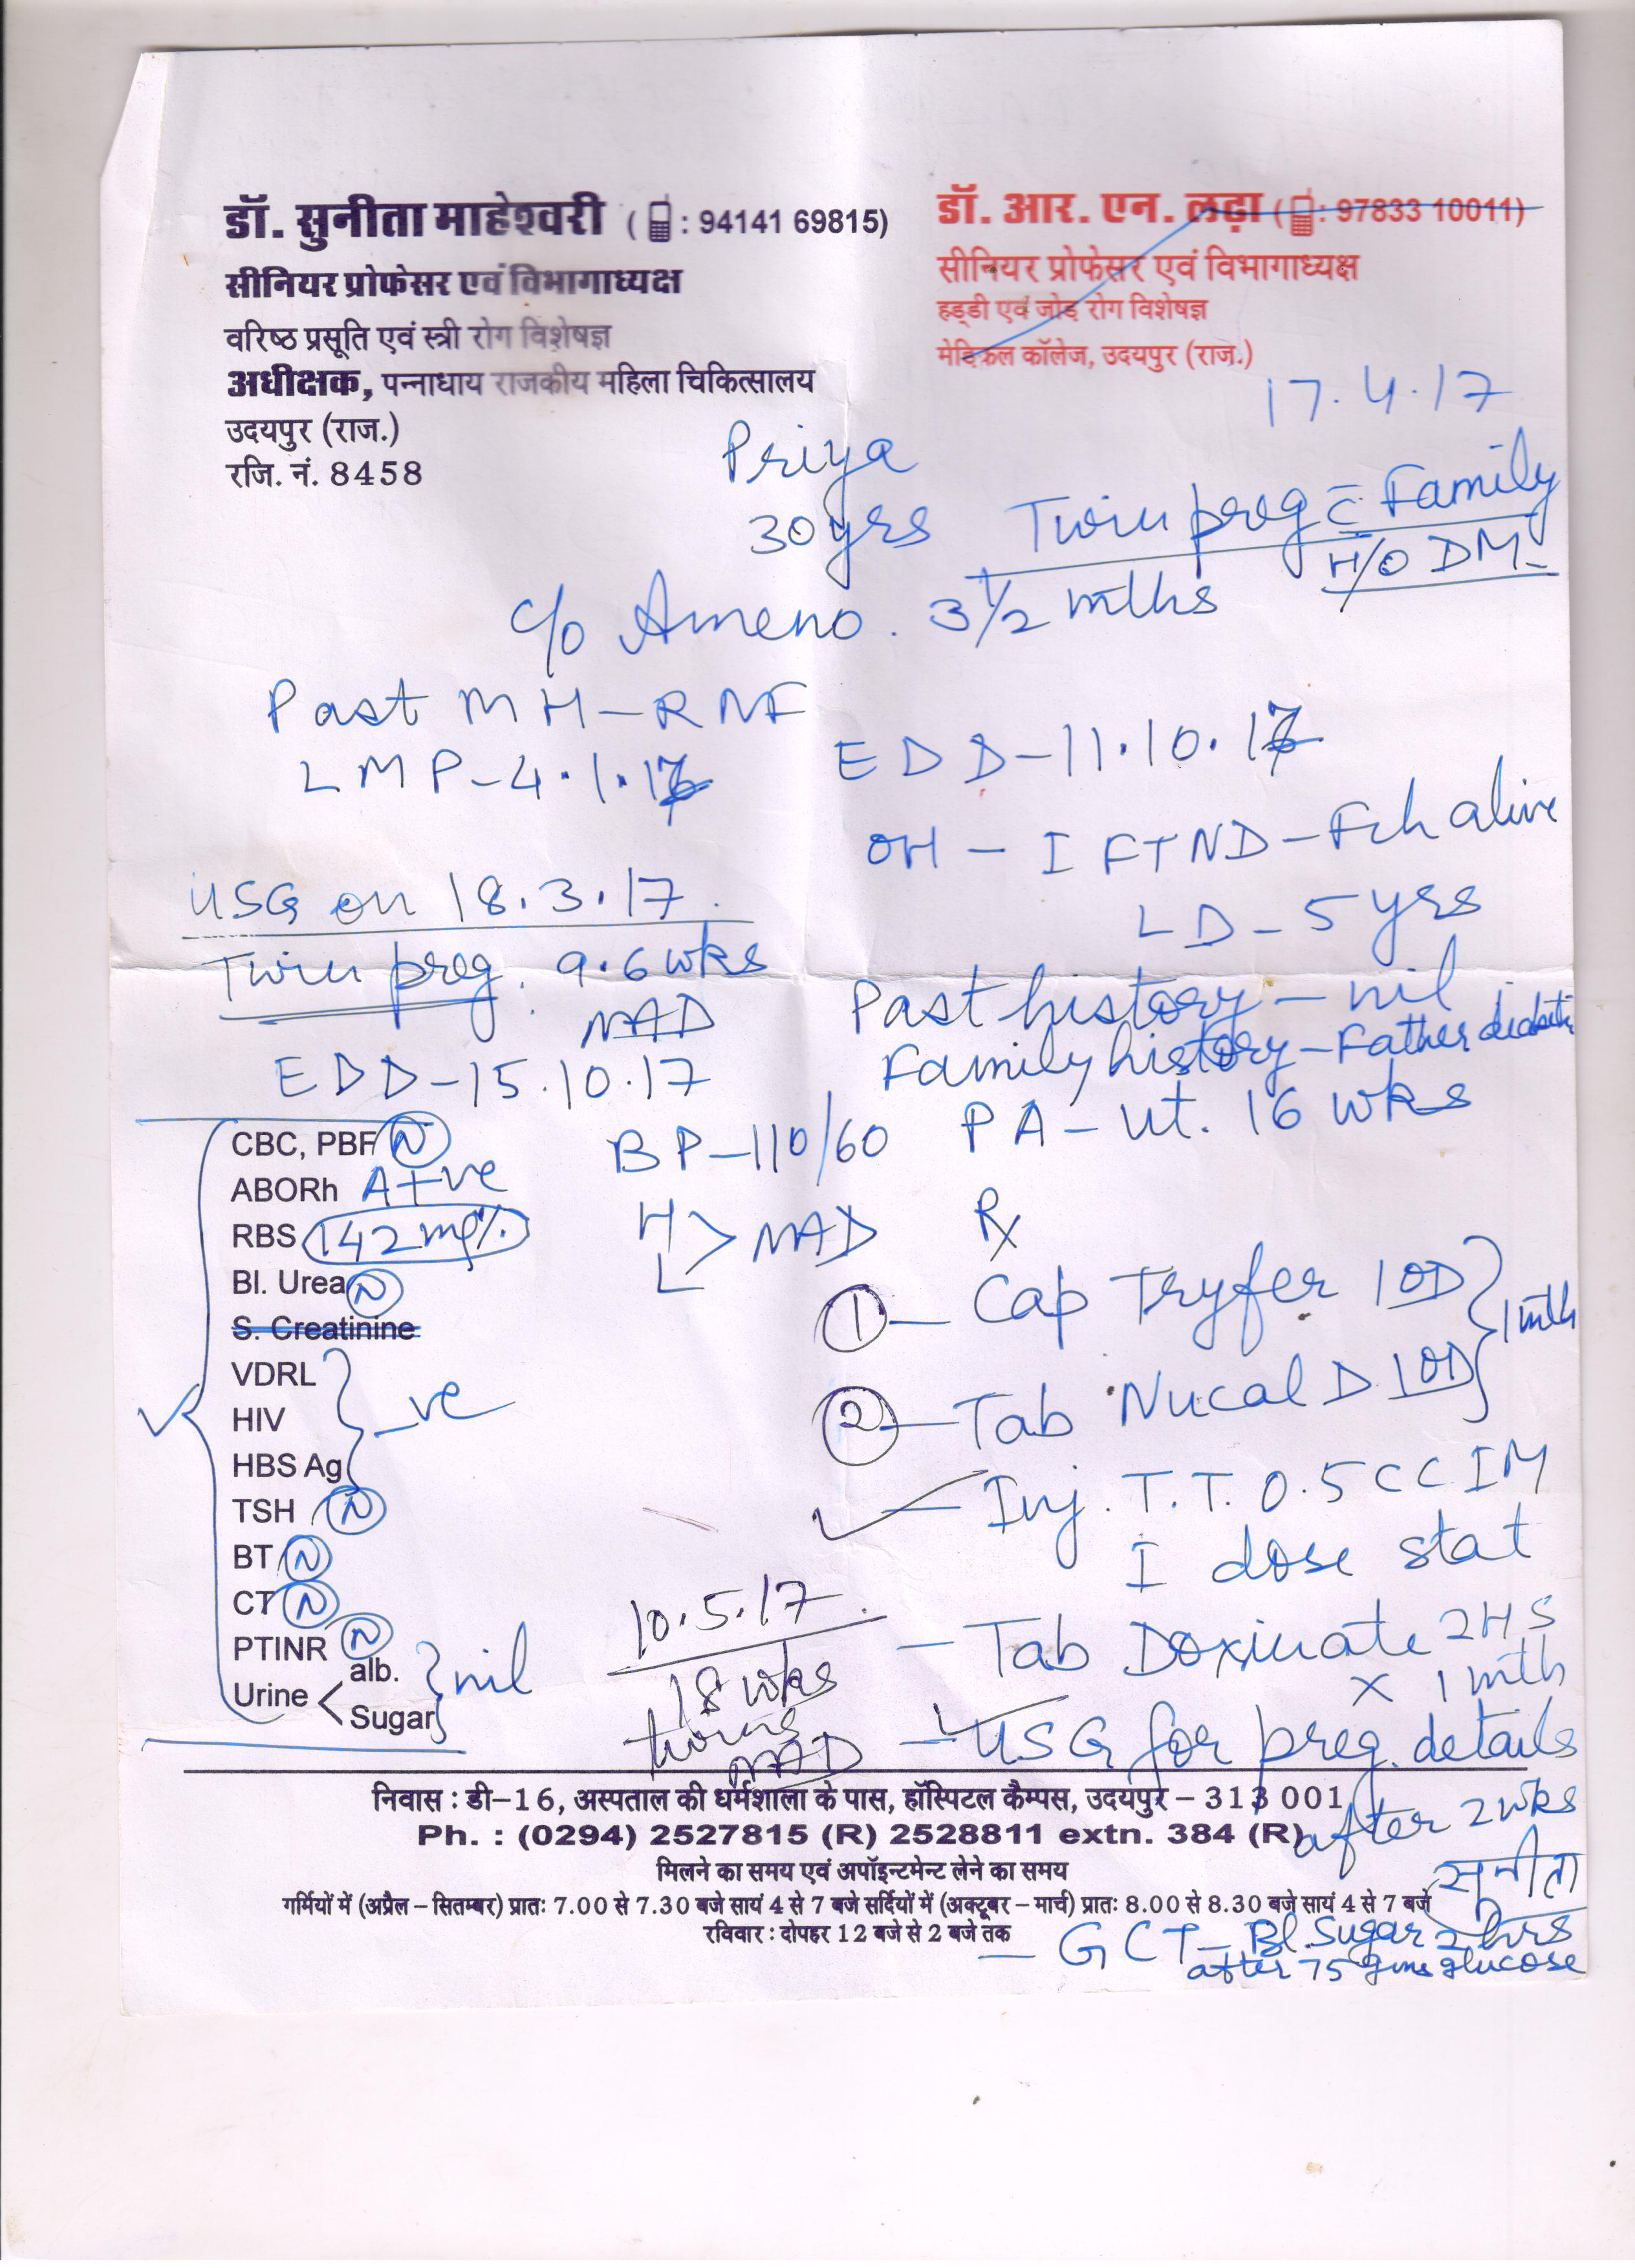 डॉ. सुनीता माहेश्वरी ( : 94141 69815)
सीनियर प्रोफेसर एवं विभागाध्यक्ष
वरिष्ठ प्रसूति एवं स्त्री रोग विशेषज्ञ
अधीक्षक, पन्नाधाय राजकीय महिला चिकित्सालय
उदयपुर (राज.)
रजि. नं. 8458
डॉ. आर. एन. लढ़ा ( : 97833 10011)
सीनियर प्रोफेसर एवं विभागाध्यक्ष
हड्डी एवं जोड़ रोग विशेषज्ञ
मेडिकल कॉलेज, उदयपुर (राज.)
17.4.17
Priya
30 yrs
Twin preg c Family
H/O DM
c/o Ameno. 3 1/2 mths
Past MH - RNF
LMP - 4.1.17
EDD - 11.10.17
OH - I FTND - Fch alive
LD - 5 yrs
USG on 18.3.17
Twin preg. 9.6 wks
NAD
EDD - 15.10.17
Past history - nil
Family history - Father diabetic
BP - 110/60
PA - ut. 16 wks
H
L > NAD
CBC, PBF N
ABORh A+ve
RBS 142 mg%
Bl. Urea N
S. Creatinine
VDRL
HIV -ve
HBS Ag
TSH N
BT N
CT N
PTINR N
Urine < alb. nil
Sugar
Rx
1 - Cap Tryfer 1 OD
2 - Tab Nucal D 1 OD 1 mth
- Inj. T.T. 0.5 CC IM
I dose stat
- Tab Doxinate 2HS
x 1 mth
- USG for preg. details
after 2 wks
सुनीता
- GCT - Bl. Sugar 2 hrs
after 75 gms glucose
10.5.17
18 wks
twins
NAD
निवास : डी-16, अस्पताल की धर्मशाला के पास, हॉस्पिटल कैम्पस, उदयपुर - 313 001
Ph. : (0294) 2527815 (R) 2528811 extn. 384 (R)
मिलने का समय एवं अपॉइन्टमेन्ट लेने का समय
गर्मियों में (अप्रैल - सितम्बर) प्रातः 7.00 से 7.30 बजे सायं 4 से 7 बजे सर्दियों में (अक्टूबर - मार्च) प्रातः 8.00 से 8.30 बजे सायं 4 से 7 बजे
रविवार : दोपहर 12 बजे से 2 बजे तक